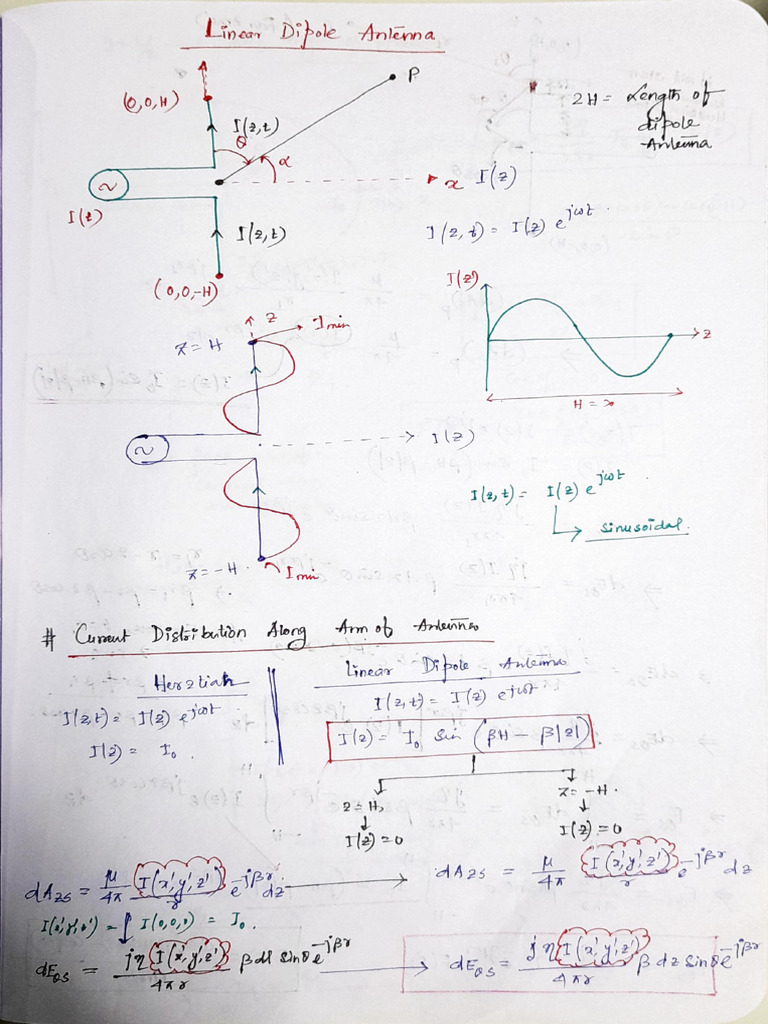 Linear Dipole Antenna
P
(0,0,H)
2H = Length of
dipole
Antenna
I(z,t)
θ
α
~
x I(z)
I(t)
I(z,t)
I(z,t) = I(z) e^jωt.
(0,0,-H)
I(z)
z
Imin
z = H
z
H = λ
~
I(z)
I(z,t) = I(z) e^jωt.
sinusoidal.
z = -H.
Imin
# Current Distribution Along Arm of Antennas
Herztian
Linear Dipole Antenna
I(z,t) = I(z) e^jωt
I(z,t) = I(z) e^jωt
I(z) = I₀.
I(z) = I₀ sin (βH - β|z|).
z = H,
z = -H.
I(z) = 0
I(z) = 0
dAzs = μ/4π I(x',y',z')/r e^-jβr dz
dAzs = μ/4π I(x',y',z')/r e^-jβr dz
I(0,0,0) = I₀.
dEθs = jη I(x',y',z')/4πr β dl sinθ e^-jβr
dEθs = jη I(x',y',z')/4πr β dz sinθ e^-jβr